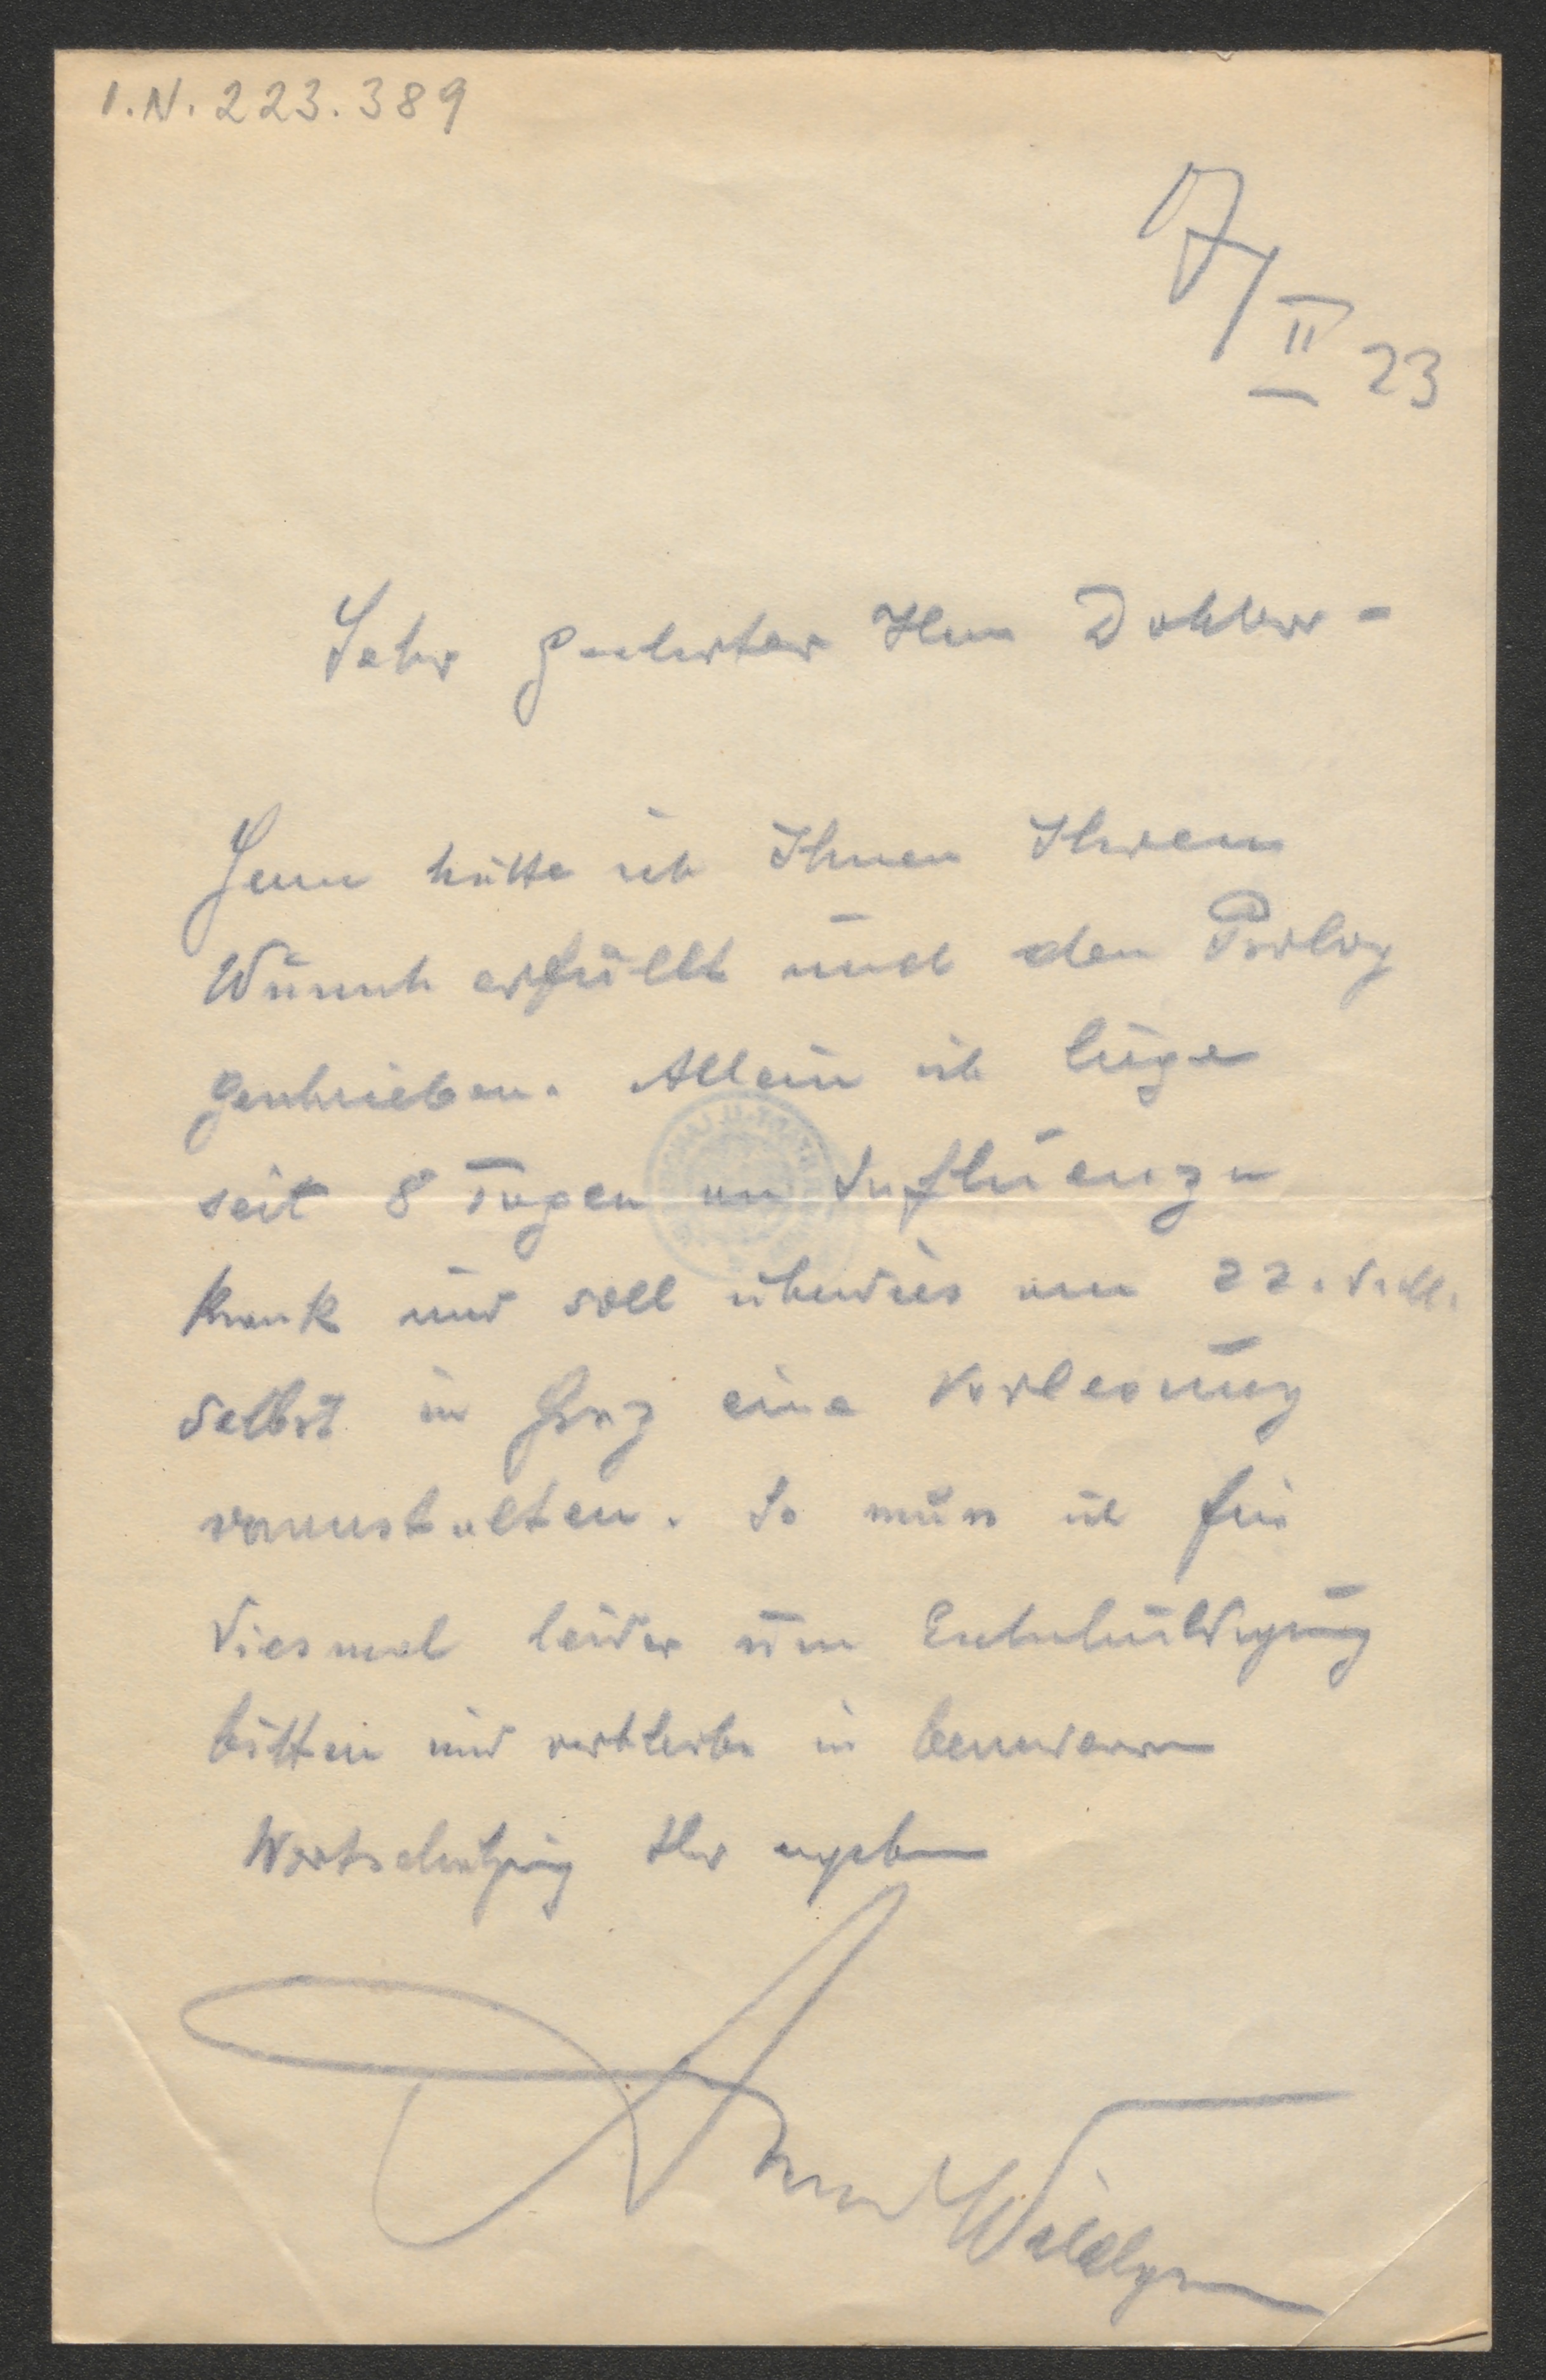 I.N. 223.389
7/II 23
Sehr geehrter Herr Doktor -
Gern hätte ich Ihnen Ihren
Wunsch erfüllt und den Prolog
geschrieben. Allein ich liege
seit 8 Tagen an Influenza
krank und soll überdies am 22. d. M.
selbst in Graz eine Vorlesung
veranstalten. So muss ich für
diesmal leider um Entschuldigung
bitten und verbleibe in besonderer
Wertschätzung Ihr ergebener